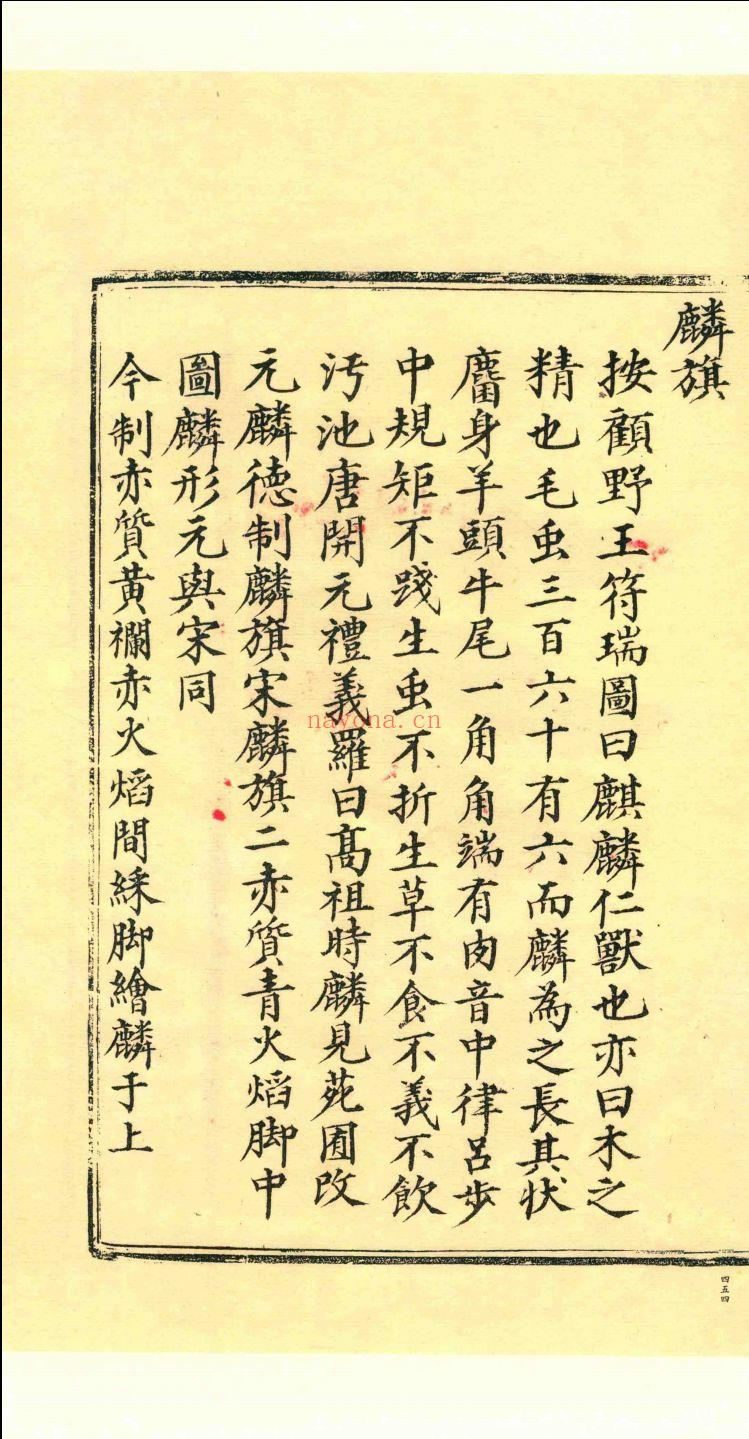 麟旗
按顧野王符瑞圖曰麒麟仁獸也亦曰木之
精也毛虫三百六十有六而麟為之長其狀
麕身羊頭牛尾一角角端有肉音中律呂步
中規矩不踐生虫不折生草不食不義不飲
汚池唐開元禮義羅曰髙祖時麟見苑囿改
元麟徳制麟旗宋麟旗二赤質青火熖脚中
圖麟形元與宋同
今制赤質黄襴赤火熖間綵脚繪麟于上
四五四
nayona.cn